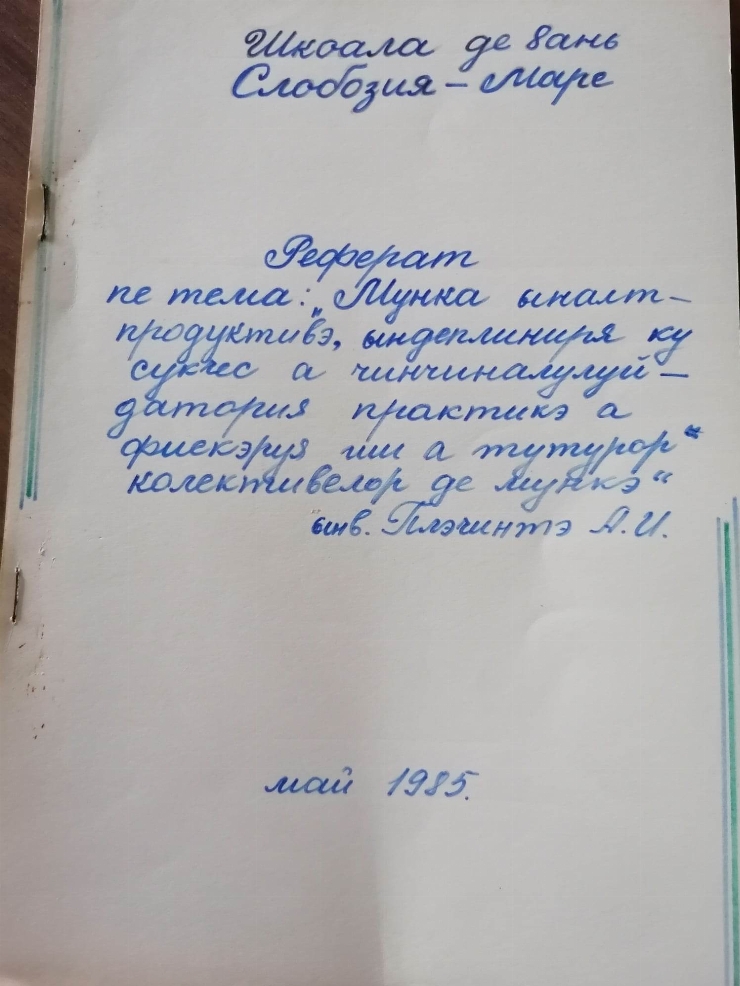 Школа де 8 ань
Слобозия – Маре
Реферат
пе тема: „Мунка ыналт-
продуктивэ, ындеплиниря ку
сукчес а чинчиналулуй –
датория практикэ а
фиекэруя ши а тутурор
колективелор де мункэ“
ынв. Плэчинтэ А.И.
май 1985.